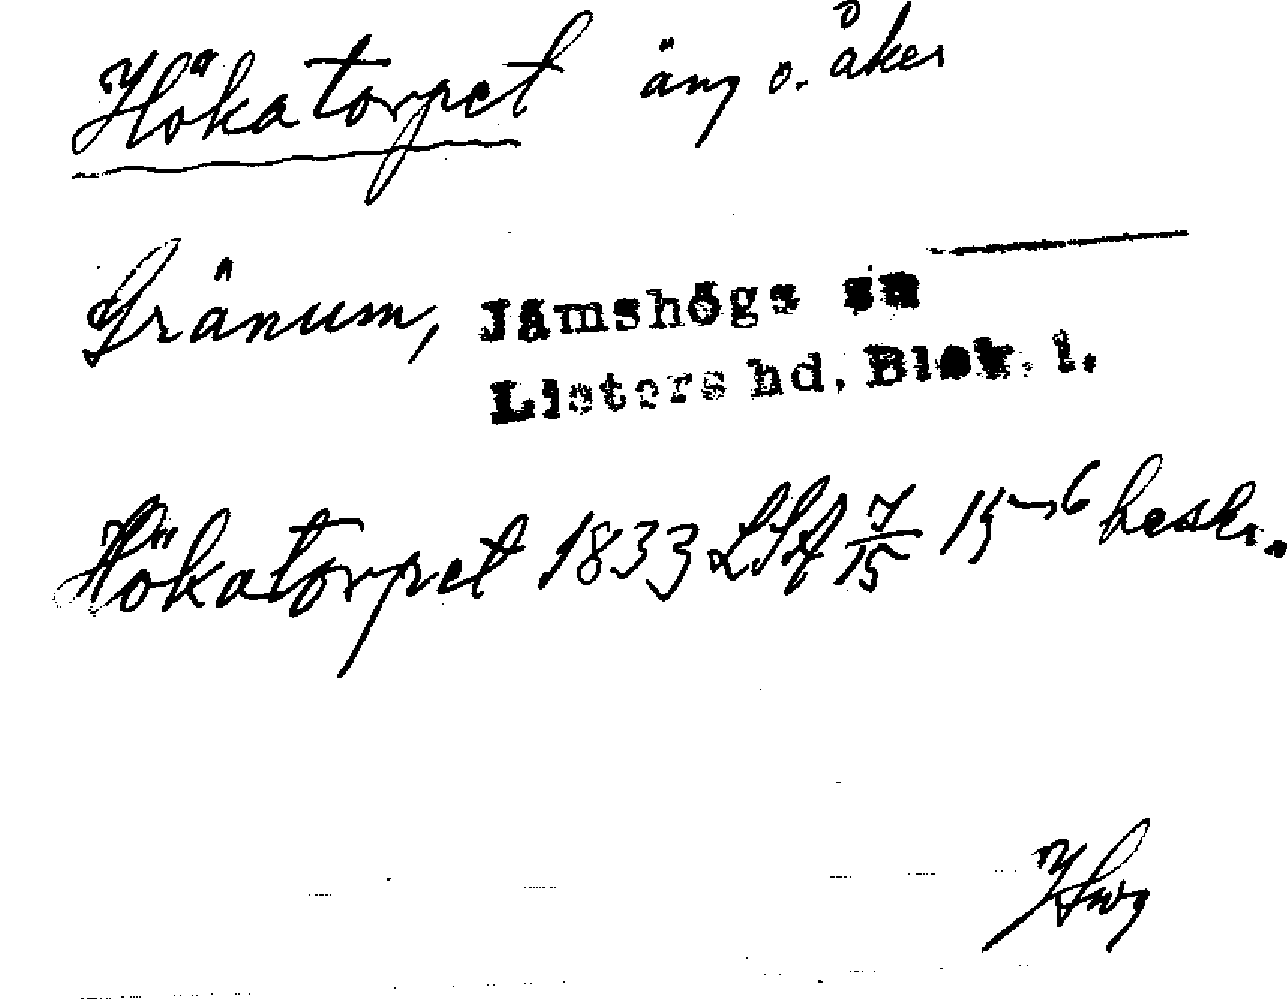 Hökatorpet äng o. åker
Gränum, Jämshögs sn
Listers hd. Blek. l.
Hökatorpet 1833 LSA 7/15 15-16 beskr.